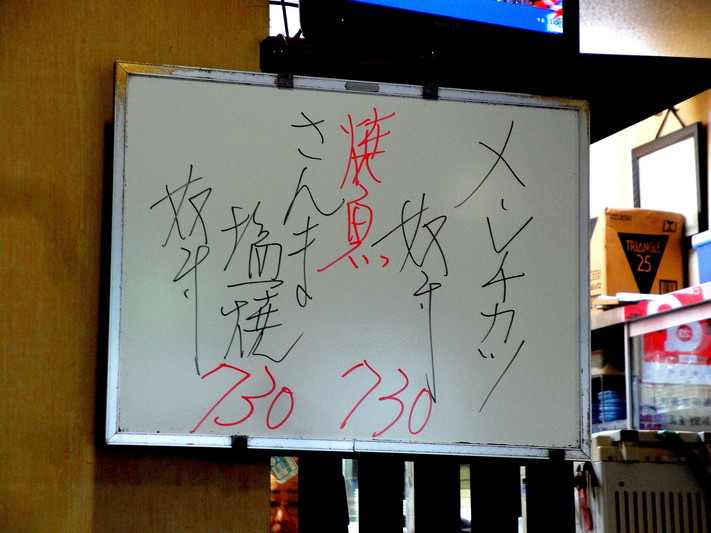 メンチカツ
奴付
730
焼魚
さんま
塩焼
奴付
730
TRIANGLE
25